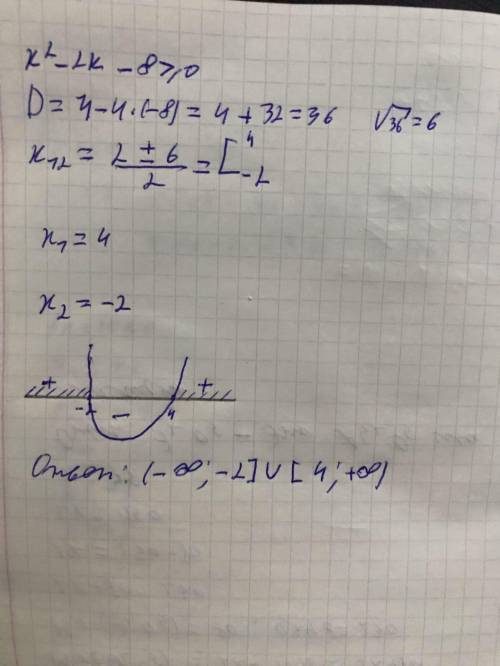 x² - 2x - 8 ⩾ 0
D = 4 - 4·(-8) = 4 + 32 = 36 √36 = 6
x₁,₂ = (2 ± 6)/2 = [4 -2
x₁ = 4
x₂ = -2
+ +
-2 - 4
Ответ: (-∞; -2] ∪ [4; +∞)